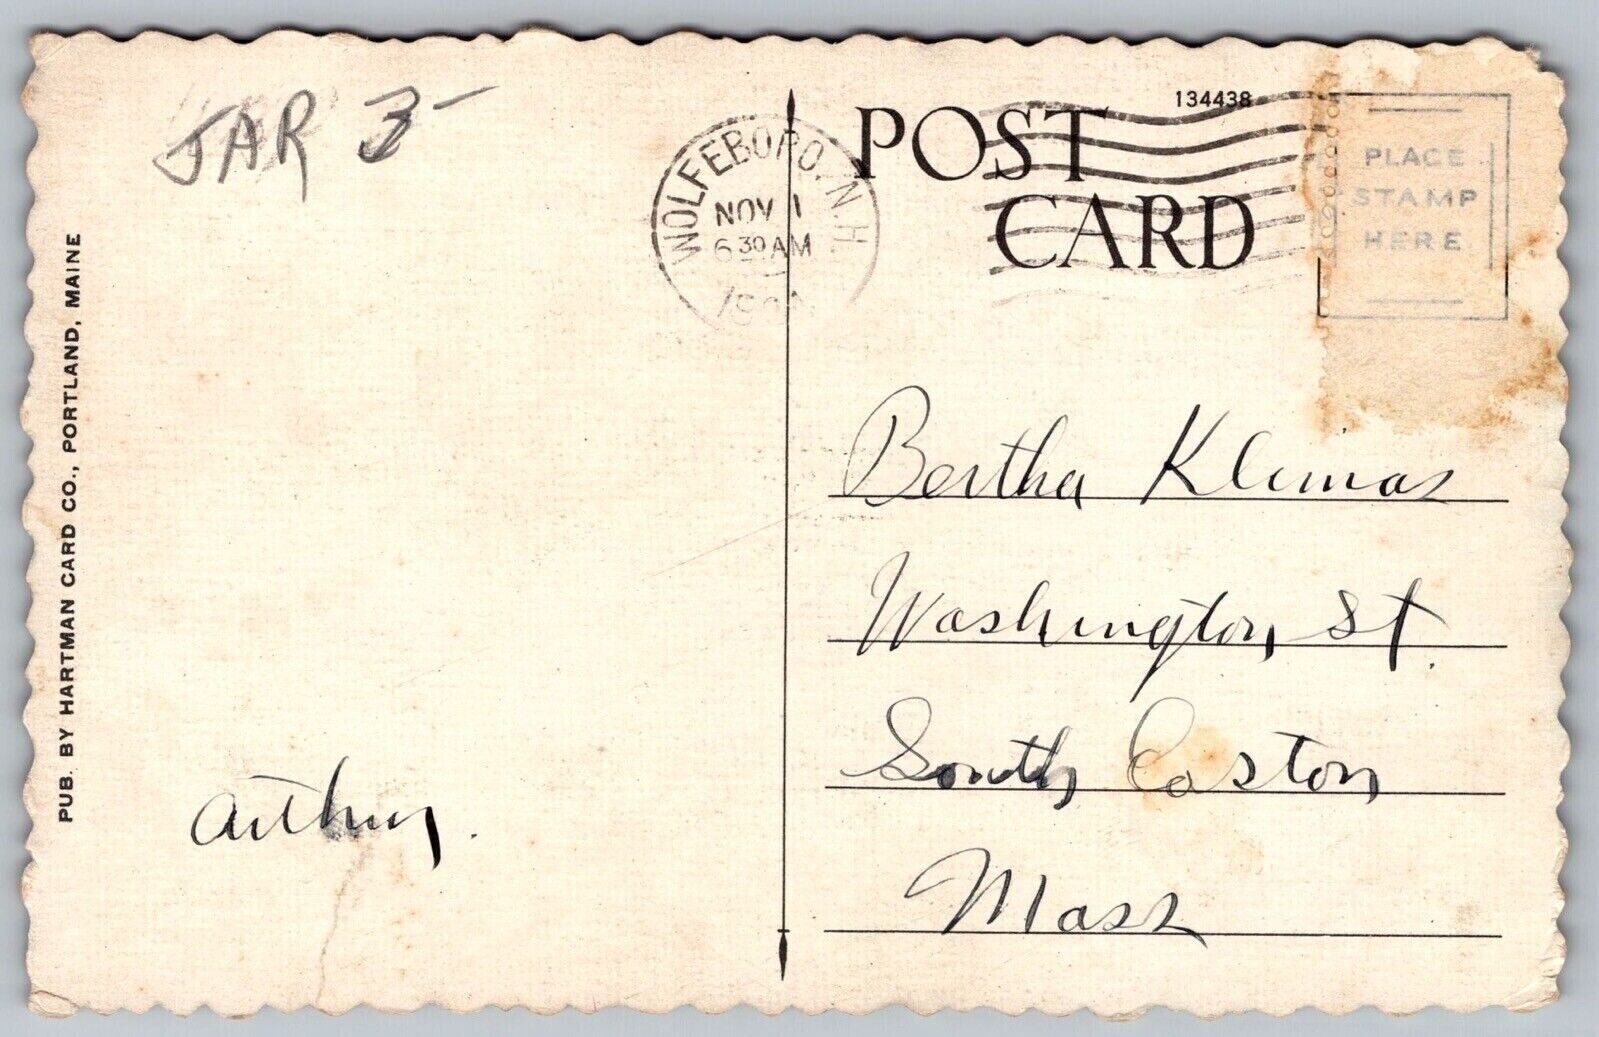 JAR 3-
PUB. BY HARTMAN CARD CO., PORTLAND, MAINE
Arthur.
WOLFEBORO, N.H.
NOV 1
6 30 AM
POST CARD
134438
PLACE
STAMP
HERE
Bertha Klimas
Washington St.
South Easton
Mass